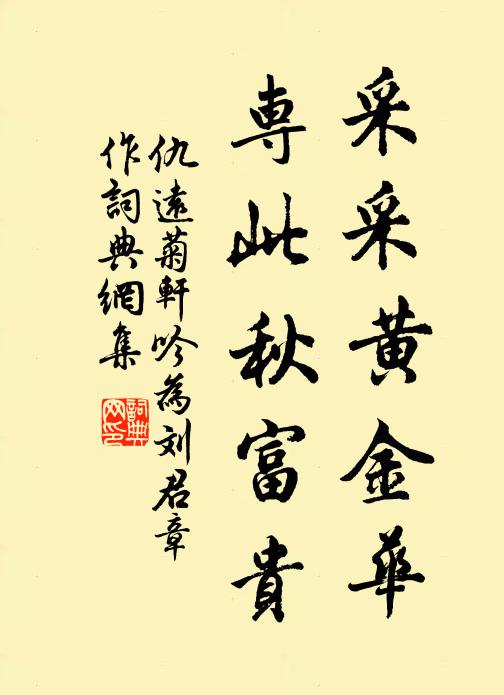 采采黄金華
専此秋富貴
仇遠菊軒吟為刘君章
作詞典網集
詞典
网印